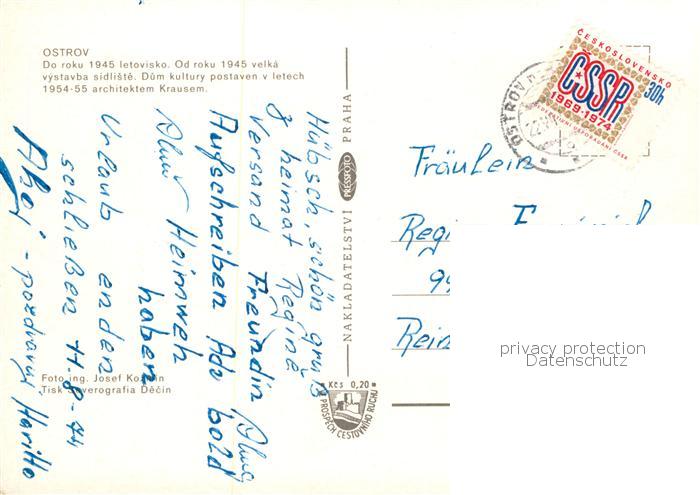 OSTROV
Do roku 1945 letovisko. Od roku 1945 velká
výstavba sídliště. Dům kultury postaven v letech
1954-55 architektem Krausem.
Hübsch, schön gruß
& heimat Regine
Versand Freundin
Aufschreiben Adr bold
Heimweh
haben
Urlaub enden
schließen 11-8-74
Ahoj - pozdravuj
Foto ing. Josef
Tisk Severografia Děčín
NAKLADATELSTVÍ PRESSFOTO PRAHA
Kčs 0,20
PROSPĚCH CESTOVNÍHO RUCHU
ČESKOSLOVENSKO
ČSSR
30h
1969-1974
OSTROV
Fräulein
Regi
99
Rein
privacy protection
Datenschutz